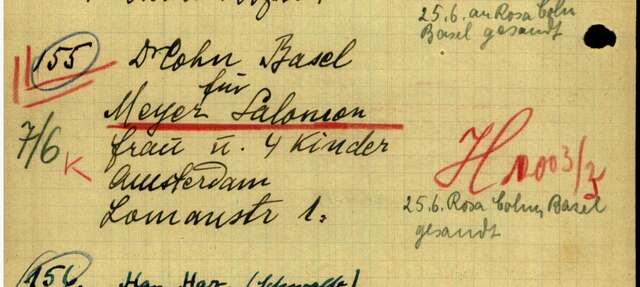 25.6. an Rosa Cohn
Basel gesandt
155 Dr Cohn Basel
für
Meyer Salomon
7/6 K Frau u. 4 Kinder
Amsterdam
Lomanstr 1.
H 1003/3
25.6. Rosa Cohn, Basel
gesandt
156